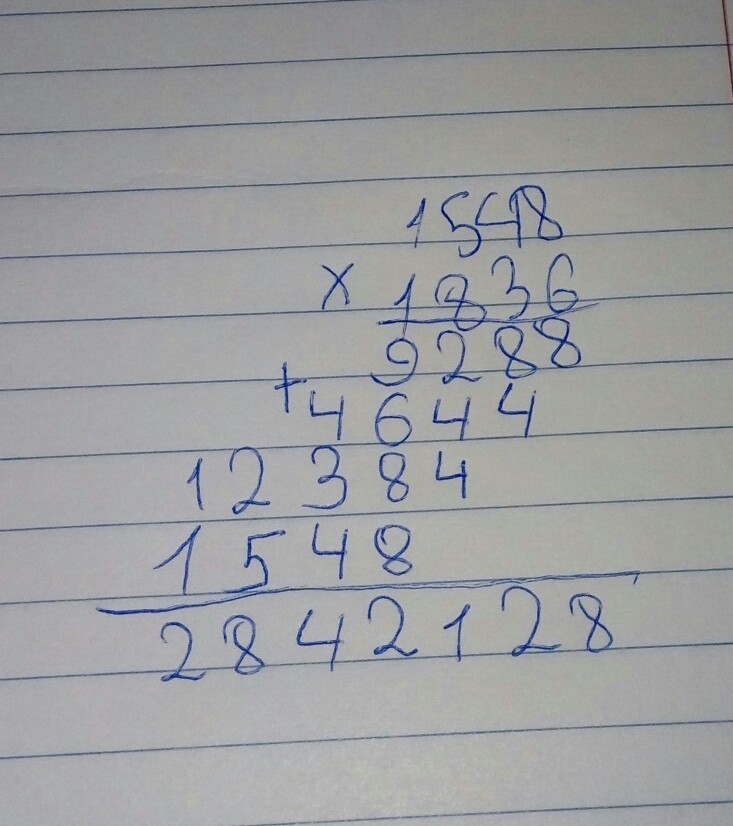 1548
x 1836
9288
+ 4644
12384
1548
2842128